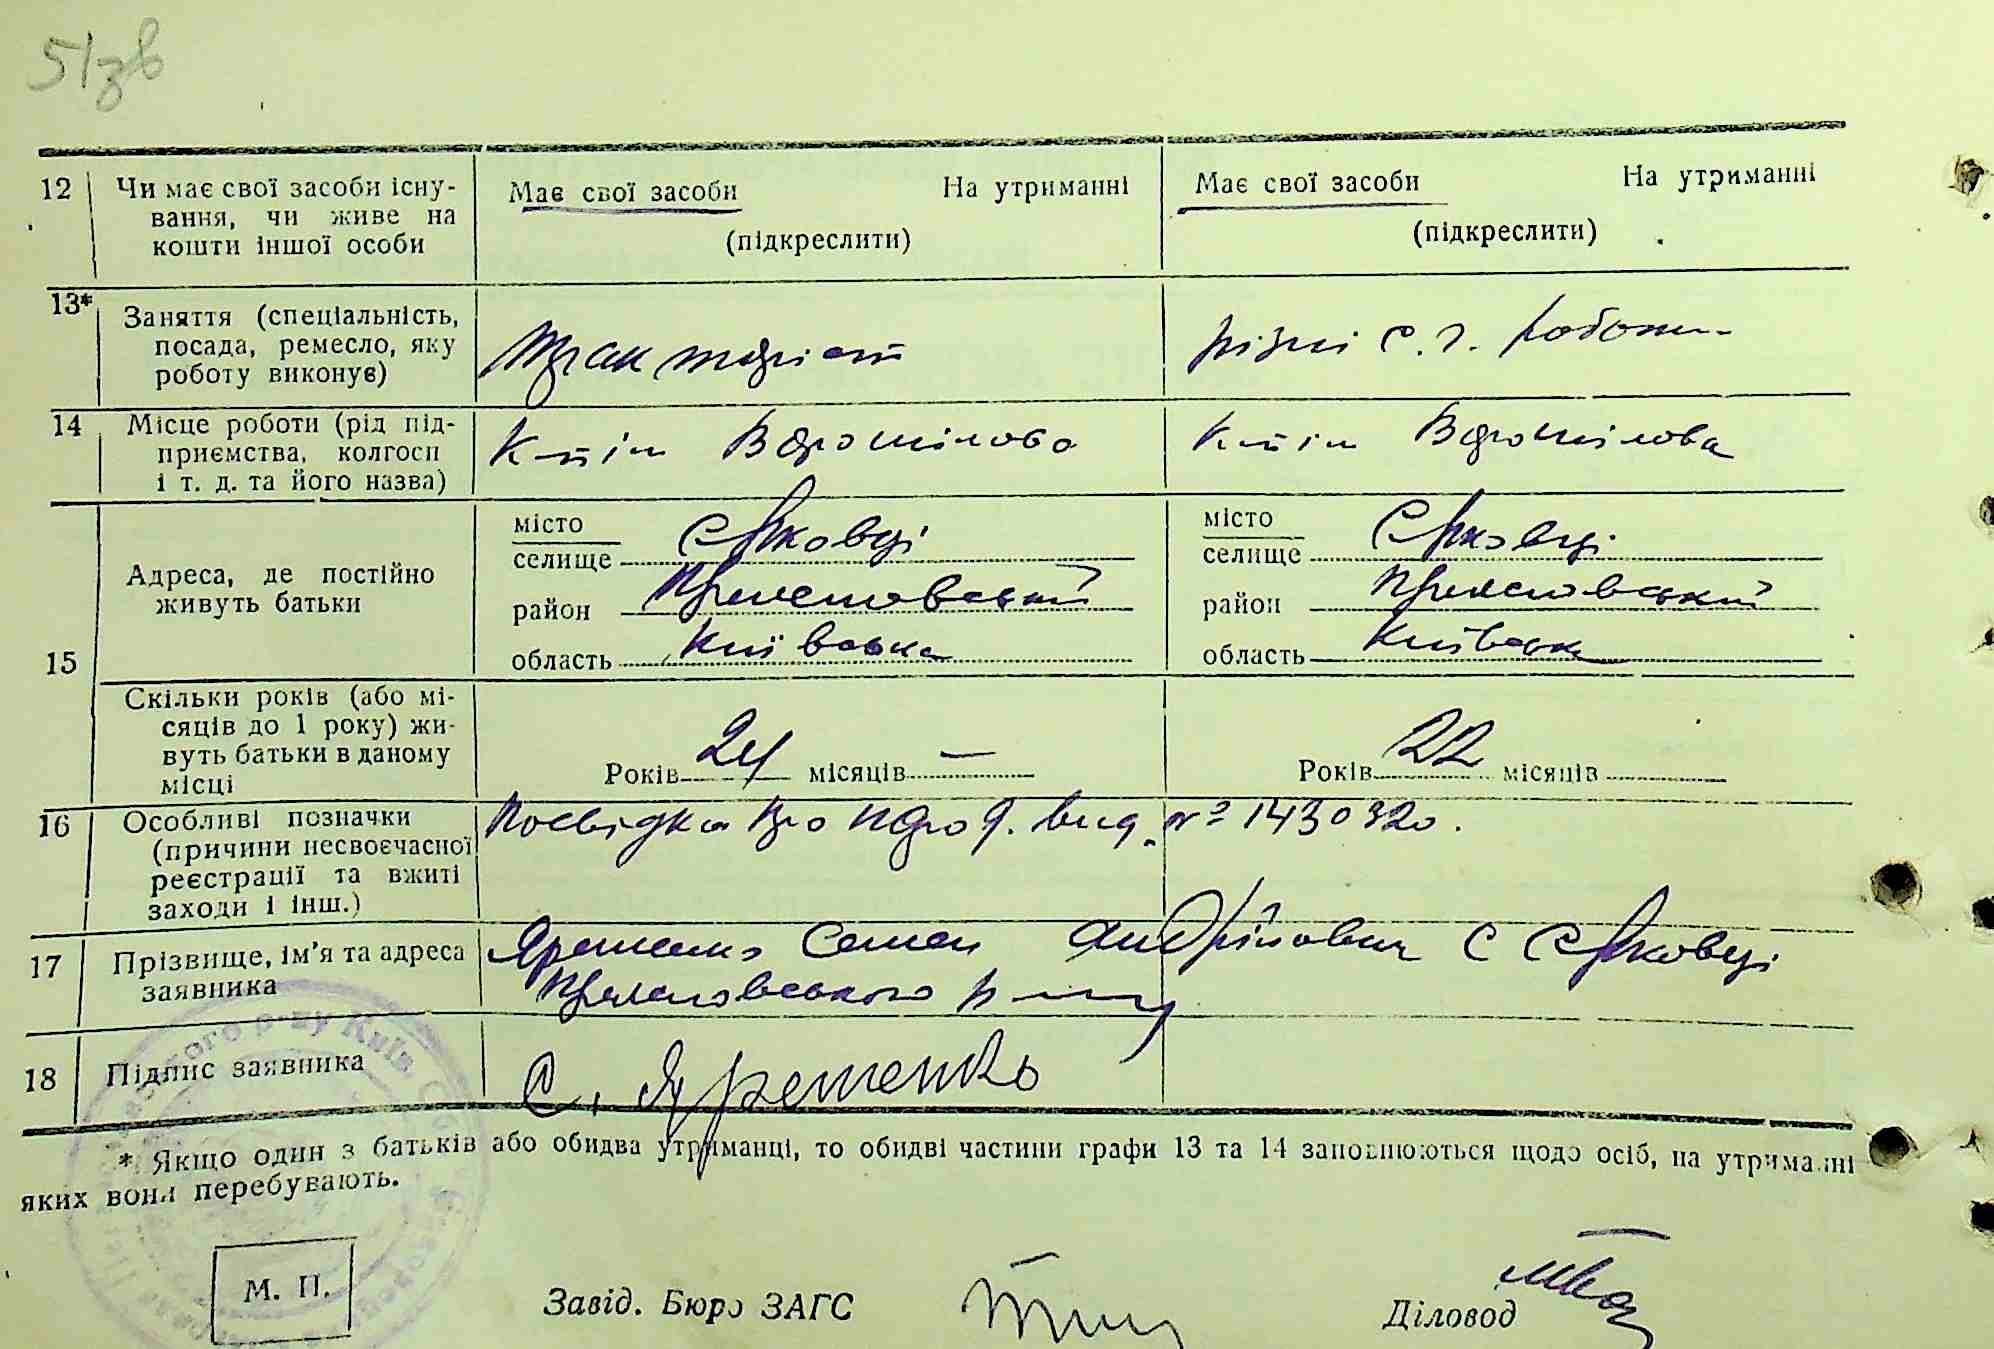 51зв
12 Чи має свої засоби існу- Має свої засоби На утриманні Має свої засоби На утриманні
вання, чи живе на
кошти іншої особи (підкреслити) (підкреслити)
13* Заняття (спеціальність,
посада, ремесло, яку тракторіст різні с. г. роботи
роботу виконує)
14 Місце роботи (рід під-
приємства, колгосп К-тім Ворошілова К-тім Ворошілова
і т. д. та його назва)
місто місто
селище селище
15 Адреса, де постійно
живуть батьки
район район
область Київська область Київська
Скільки років (або мі-
сяців до 1 року) жи-
вуть батьки в даному
місці Років 24 місяців — Років 22 місяців
16 Особливі позначки Посвідка про народ. вид. № 1430320.
(причини несвоєчасної
реєстрації та вжиті
заходи і інш.)
17 Прізвище, ім'я та адреса Яременко Семен Андрійович с
заявника
18 Підпис заявника С. Яременко
* Якщо один з батьків або обидва утриманці, то обидві частини графи 13 та 14 заповнюються щодо осіб, на утриманні
яких вони перебувають.
М. П.
Завід. Бюро ЗАГС Діловод